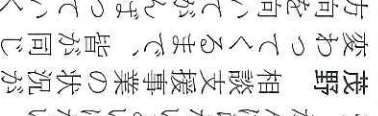 茂野　相談支援事業の状況が
変わってくるまで、皆が同じ
方向を向いてがんばっていく